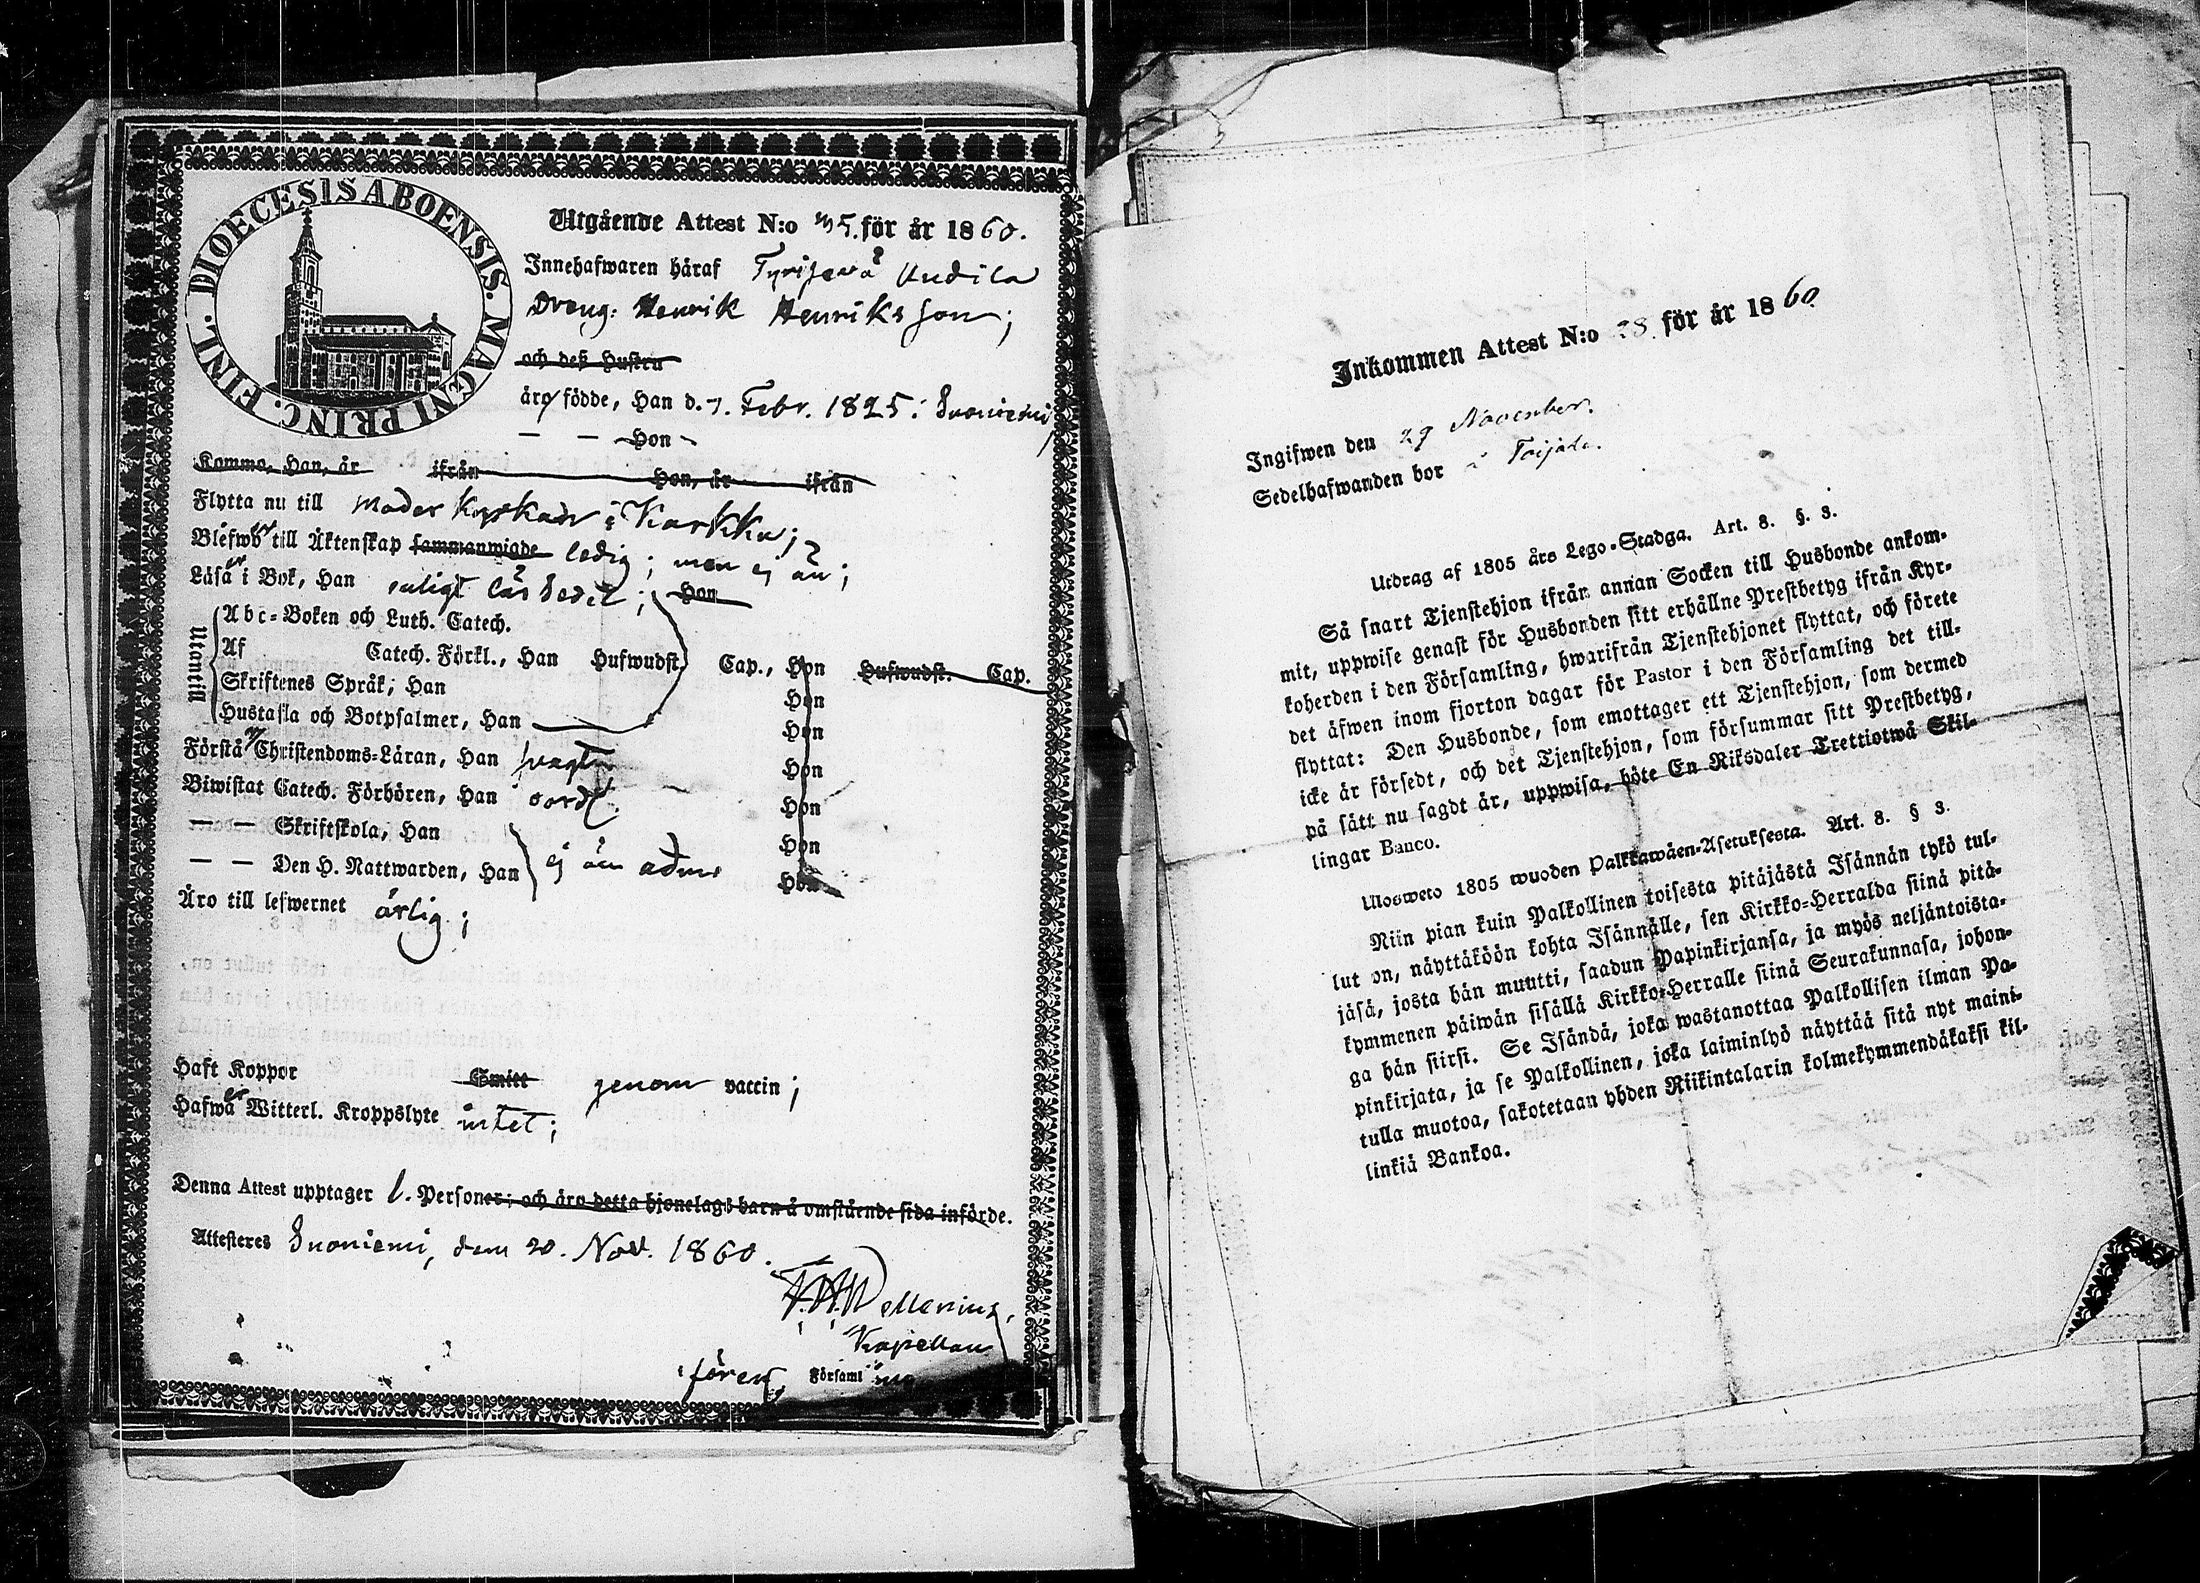 DIOECESIS ABOENSIS. MAGNI PRINC. FINL.
Utgående Attest N:o 35. för år 1860.
Innehafwaren häraf Tyrisevä Uudila
Dreng: Henrik Henriksson;
och deß Hustru
äro födde, Han d. 7. Febr. 1825 i Suoniemi
— — Hon —
Komma, Han, år ifrån Hon, år ifrån
Flytta nu till Moder Kyrkan i Karkku;
Blefwo till Äktenskap sammanwigde ledig; men ej än;
Läsa i Bok, Han enligt läs Hon
Utantill
Abc-Boken och Luth. Catech.
Af Catech. Förkl., Han Hufwudst. Cap., Hon Hufwudst. Cap.
Skriftenes Språk, Han Hon
Hustafla och Botpsalmer, Han Hon
Förstå Christendoms-Läran, Han svagt Hon
Biwistat Catech. Förhören, Han Hon
— — Skriftskola, Han Hon
— — Den H. Nattwarden, Han ej än adm: Hon
Äro till lefwernet ärlig;
Haft Koppor Smitt genom vaccin;
Hafwa Witterl. Kroppslyte intet;
Denna Attest upptager 1. Personer; och äro detta hjonelags barn å omstående sida införde.
Attesteres Suoniemi, den 20. Nov. 1860.
F. W. Mellenius,
Kapellan
Församl
Inkommen Attest N:o 28. för år 1860
Ingifwen den 29 November.
Sedelhafwanden bor å
Utdrag af 1805 års Lego-Stadga. Art. 8. §. 3.
Så snart Tjenstehjon ifrån annan Socken till Husbonde ankom-
mit, uppwise genast för Husbonden sitt erhållne Prestbetyg ifrån Kyr-
koherden i den Församling, hwarifrån Tjenstehjonet flyttat, och förete
det äfwen inom fjorton dagar för Pastor i den Församling det till-
flyttat: Den Husbonde, som emottager ett Tjenstehjon, som dermed
icke är försedt, och det Tjenstehjon, som försummar sitt Prestbetyg,
på sätt nu sagdt är, uppwisa, böte En Riksdaler Trettiotwå Skil-
lingar Banco.
Ulosweto 1805 wuoden Palkkawäen-Asetuksesta. Art. 8. § 3.
Niin pian kuin Palkollinen toisesta pitäjästä Isännän tykö tul-
lut on, näyttäköön kohta Isännälle, sen Kirkko-Herralda siinä pitä-
jäsä, josta hän muutti, saadun Papinkirjansa, ja myös neljäntoista-
kymmenen päiwän sisällä Kirkko-Herralle siinä Seurakunnasa, johon-
ga hän siirsi. Se Isändä, joka wastanottaa Palkollisen ilman Pa-
pinkirjata, ja se Palkollinen, joka laiminlyö näyttää sitä nyt maini-
tulla muotoa, sakotetaan yhden Riikintalarin kolmekymmendäkaksi kil-
linkiä Bankoa.